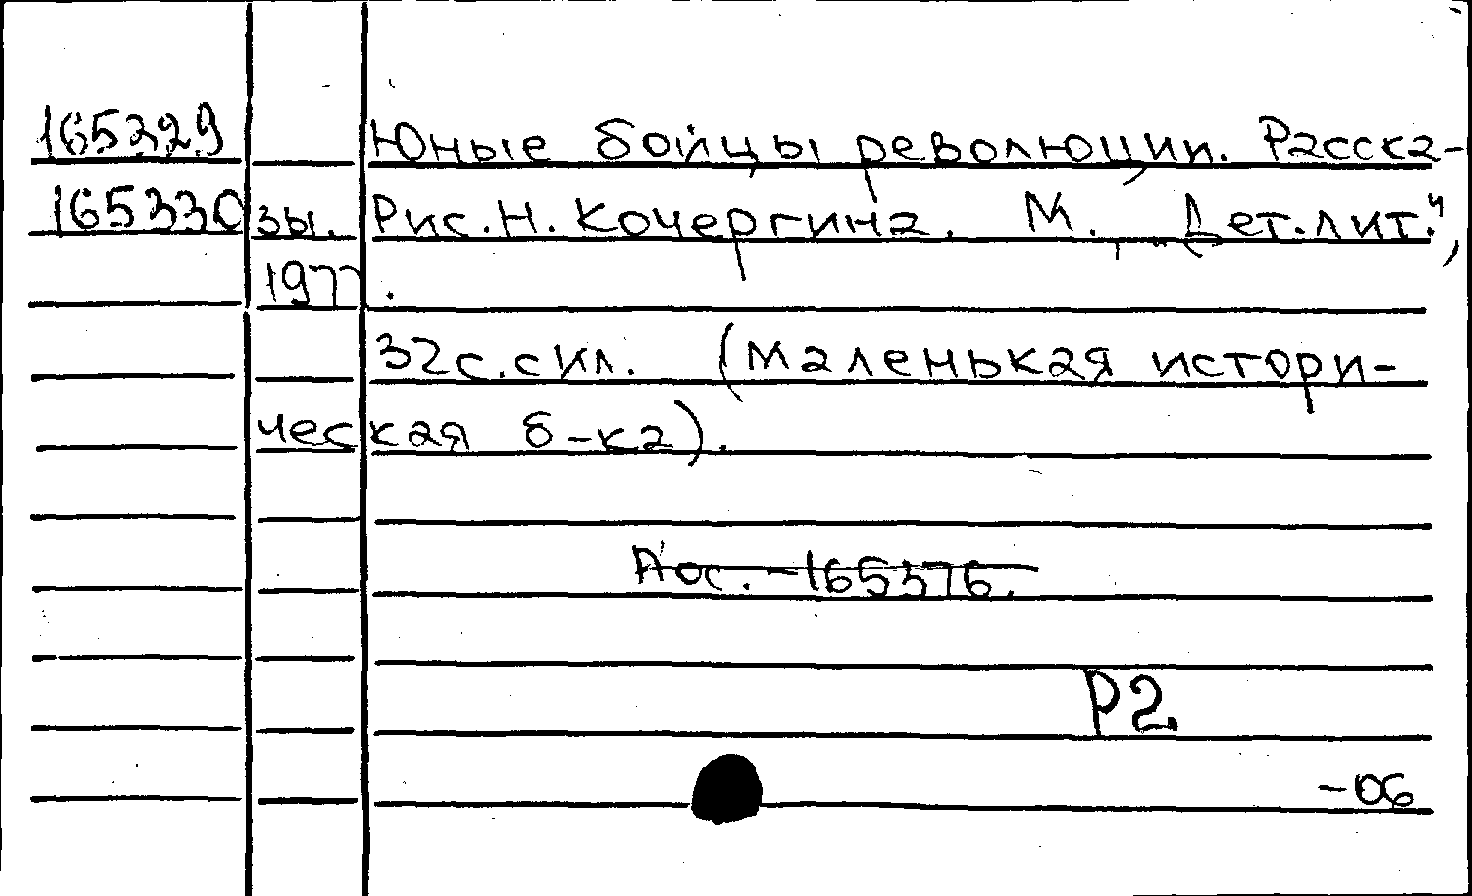 165329 Юные бойцы революции. Расска-
165330 зы. Рис. Н. Кочергина. М., "Дет. лит.",
1977.
32с. с ил. (Маленькая истори-
ческая б-ка).
165376.
Р2
-06